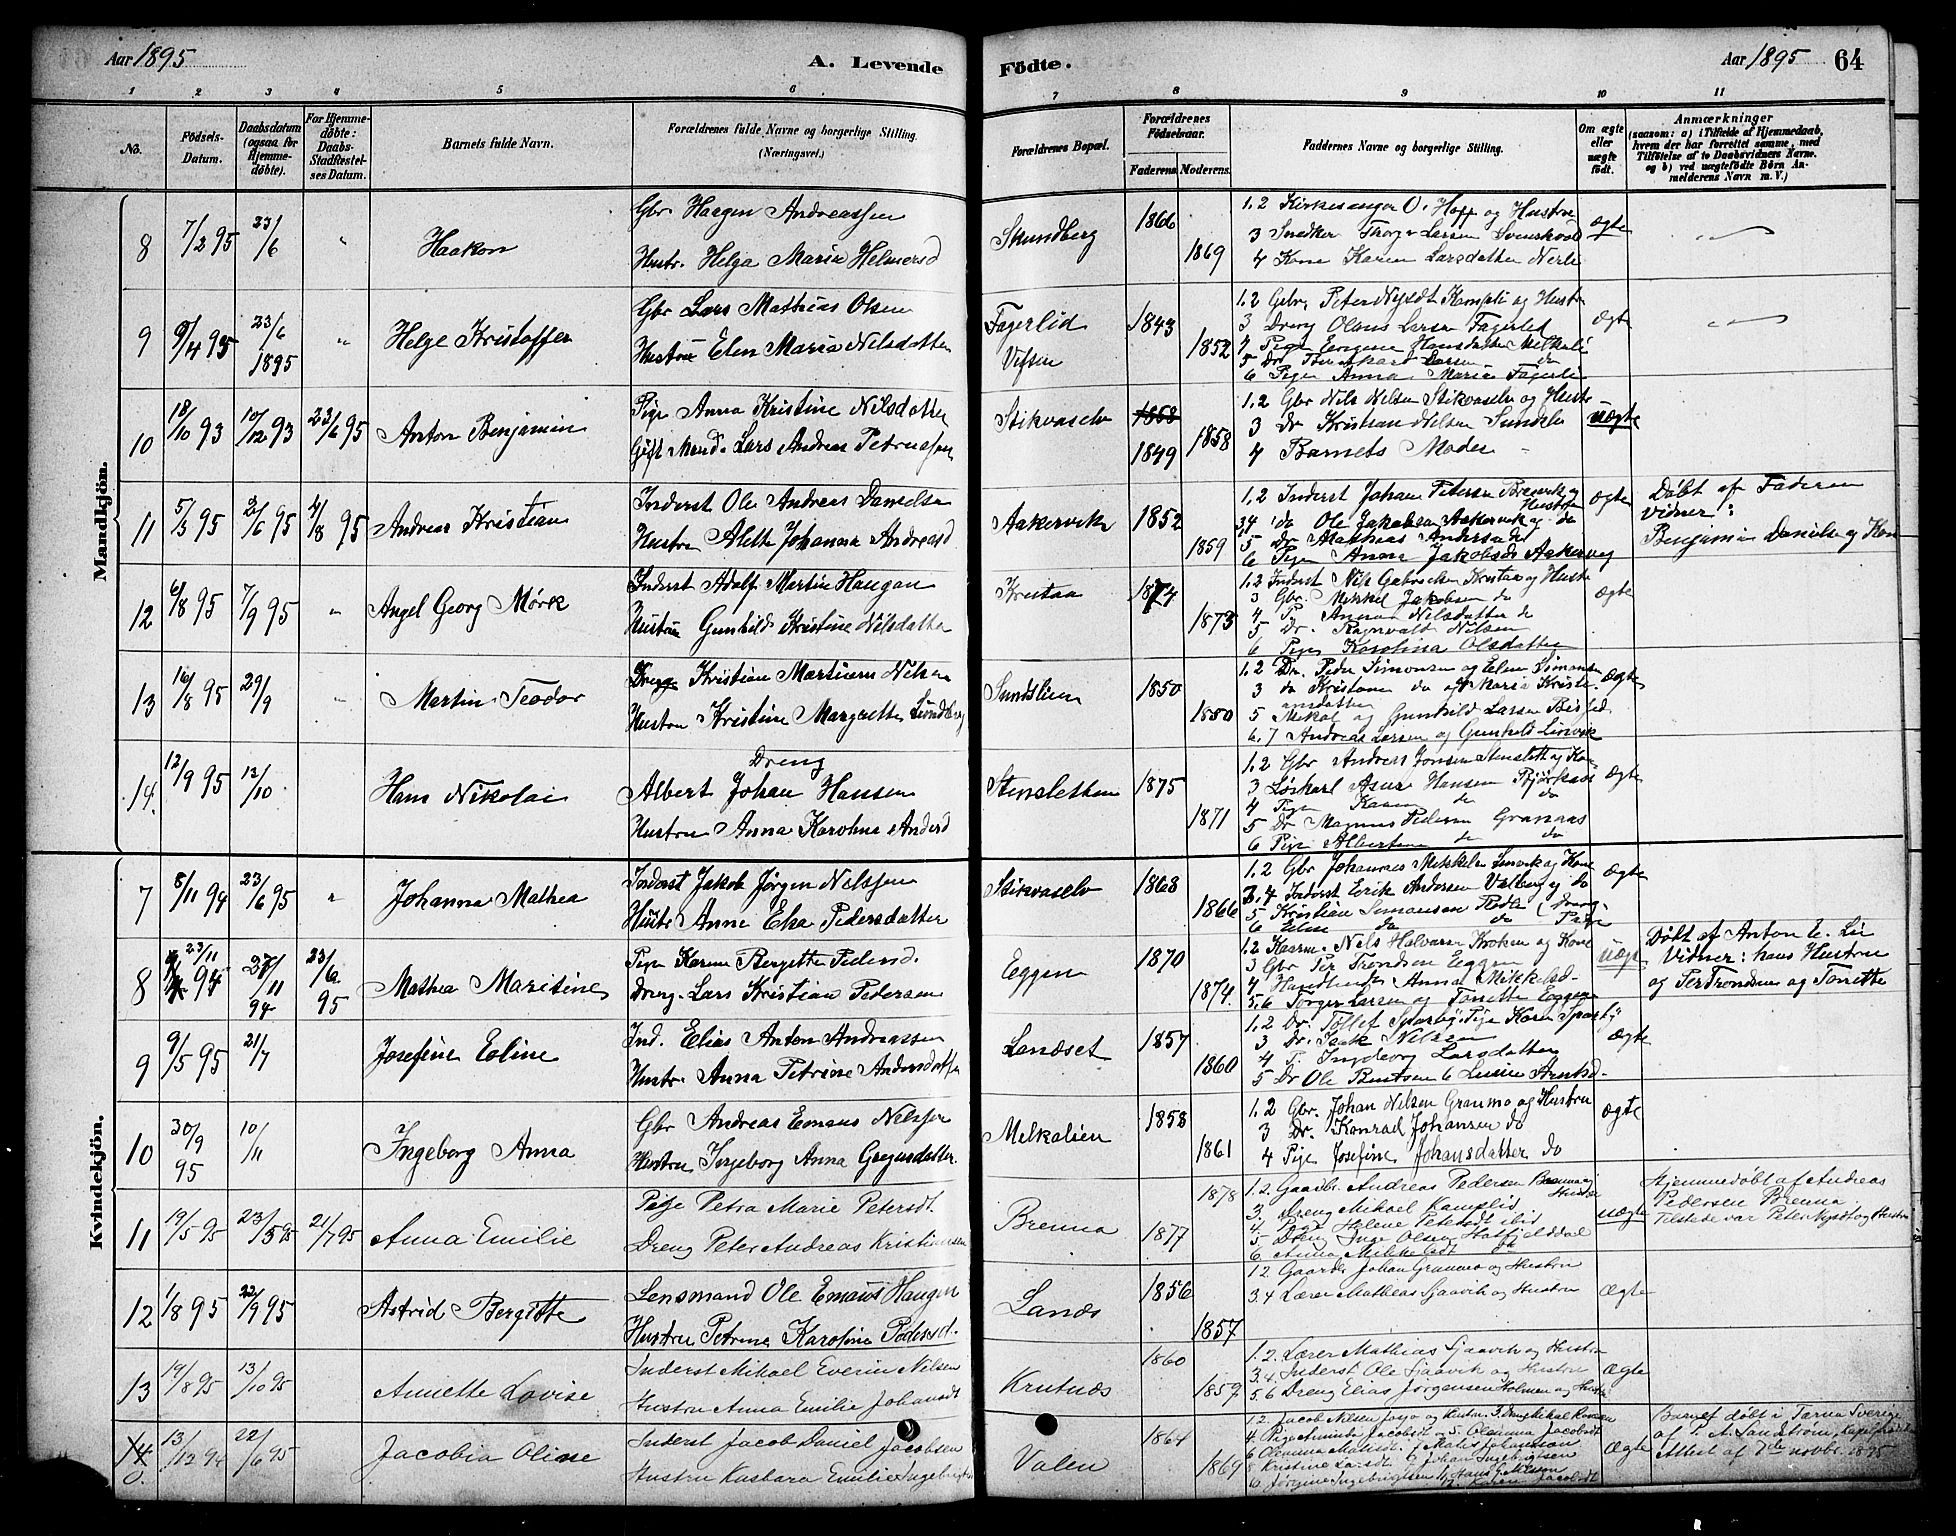 Aar 1895
A. Levende
Födte.
Aar 1895
64
1 2 3 4 5 6 7 8 9 10 11
No.
Födsels-
Datum.
Daabsdatum
(ogsaa for
Hjemme-
döbte).
For Hjemme-
döbte:
Daabs-
Stadfæstel-
ses Datum.
Barnets fulde Navn.
Forældrenes fulde Navne og borgerlige Stilling.
(Næringsvei.)
Forældrenes Bopæl.
Forældrenes
Födselsaar.
Faderens.
Moderens.
Faddernes Navne og borgerlige Stilling.
Om ægte
eller
uægte
født.
Anmærkninger
(saasom: a) i Tilfælde af Hjemmedaab,
hvem der har forrettet samme, med
Tilföielse af to Daabsvidners Navne.
og b) ved uægtefödte Börn An-
melderens Navn m. V.)
Mandkjön.
8
7/2 95
23/6
"
Haakon
Gbr. Haagen Andreassen
Hustr. Helga Maria Helmersd
Skundberg
1866
1869
1.2 Kirkesanger O. Hopp og Hustru
3 Snedker Thorger Larsen
4 Kone Karen Larsdatter
ægte
9
9/4 95
23/6
1895
"
Helge Kristoffer
Gbr Lars Mathias Olsen
Hustru Elen Maria Nilsdatter
Fagerlid
Vefsen
1843
1852
1.2 Gbr. Peter Nysdt Kampli og Hustru
3 Dreng Olaus Larsen Fagerlid
4 Pige Eugene Hansdatter Melkeli
6 Pige Anna Marie Fagerli
ægte
10
18/10 93
10/12 93
23/6 95
Anton Benjamin
Pige Anna Kristine Nilsdatter
Gift Mand. Lars Andreas Petersen
Stikvaselv
1858
1849
1858
1.2 Gbr Nils Nilsen Stikvaselv og Hustr
3 Dr Kristian Nilsen
4 Barnets Moder
uægte
11
5/5 95
2/6 95
4/8 95
Andreas Kristian
Inderst Ole Andreas Danielsen
Hustru Alette Johanna Andreasd
Aakervik
1852
1859
1.2 Inderst Johan Petersen Brenvik og
Hustru
34 do Ole Jakobsen Aakervik og do
5 Dr Mathias Andersen
6 Pige Anna Jakobsdt Aakervig
ægte
Døbt af Faderen
Vidner:
Benjamin Daniels og Kone
12
6/8 95
7/9 95
"
Angel Georg Mørk
Inderst Adolf Martin Haugan
Hustru Gunhild Kristine Nilsdatter
Krutaa
1874
1873
1.2 Inderst Nils Krutaa og Hustr
3 Gbr. Mikkel Jakobsen do
4 P. Anna Nilsdatter do
5 Dr. Ragnvald Nilsen
6 Pige Karolina Olsdatter
ægte
13
16/8 95
29/9
"
Martin Teodor
Dreng Kristian Martinus Nilsen
Hustru Kristine Margrethe
Sundslien
1850
1850
1.2 Dr. Peder Simonsen og Elen Simonsen
3 do Kristoner do og Maria Kristi-
ansdatter
5 Mekal og Gunhild Larsen
6.7 Andreas Larsen og Gunhild Linvik
ægte
14.
12/9 95
12/10
Hans Nikolai
Dreng
Albert Johan Hansen
Hustru Anna Karoline Andersd
Stensletten
1875
1871
1.2 Gbr Andreas Jonsen Stenslett og Ko-
3 Løskarl Hansen
4 Pige Karen do do
5 Dr Magnus Pedersen Granaas
6 Pige Albertine do do
ægte
Kvindekjön.
7
8/11 94
23/6 95
"
Johanna Mathea
Inderst Jakob Jørgen Nilssen
Hustr Anne Elsa Pedersdatter
Stikvaselv
1868
1866
1.2 Gbr Johannes Mikkelsen Linvik og Kone
3.4 Inderst Erik Andersen Valberg og do
5 Kristian Simonsen (Dreng
6 Eline do do Pige
ægte
8
23/11 94
27/11
94
23/6
95
Mathea Maritine
Pige Karen Bergitte Pedersd.
Dreng. Lars Kristian Pedersen
Eggen
1870
1874.
1.2 Nils Halvarsen Kroken og Kone
3 Gbr Per Trondsen Eggen
4 Anna Mikkelsd-
5.6 Torger Larsen og Tonette Eggen
uægt
Døbt af Anton E. Lie
Vidner: hans Hustru
og Per Trondsen og Tonette
9
9/5 95
21/7
Josefine Eoline
Ind. Elias Anton Andreassen
Hustr. Anna Petrine Andersdatter
Lenæset
1857
1860
1.2 Dr. Tollef Sparby, Pige Karen Sparby
3 Dr. Isak Nilsen
4 P. Ingeborg Larsdatter
5 Dr Ole Bentsen 6
ægte
10
30/9
95
10/11
Ingeborg Anna
Gbr Andreas Emaus Nilssen
Hustru Ingeborg Anna Gregusdatter.
Melkalien
1858
1861
1.2 Gbr. Johan Nilsen Granmo og Hustru
3 Dr. Konrad Johansen do
4 Pige Josefine Johansdatter do
ægte
11
19/5 95
23/5 95
21/7 95
Anna Emilie
Pige Petra Marie Petersdt.
Dreng Peter Andreas Kristiansen
Brenna
1878
1877
1.2. Gaardbr. Andreas Pedersen Brenna og
Hustru
3. Dreng Mikael Kamplid
4. Pige Helene Petersdt ibid
5 Dreng Inge Olsen Hatfjelddal
6 Anna Mikkelsdt do
uægte
Hjemmedøbt af Andreas
Pedersen Brenna.
Tilstede var Peter Nysdt og Hustru
12
1/8 95
22/9 95
Astrid Bergitte
Lensmand Ole Emaus Haugen
Hustru Petrine Karoline Pedersd.
Lanæs
1856
1857
1.2 Gaardbr Johan Granmo og Hustru
3.4 Lærer Mathias Sjaavik og Hustru
ægte
13
19/8 95
13/10 95
Annette Lovise
Inderst Mikael Everin Nilsen
Hustru Anna Emilie Johansdt
Krutnæs
1860
1859
1.2. Lærer Mathias Sjaavik og Hustru
3.4. Inderst Ole Sjaavik og Hustru
5.6 Dreng Elias Jørgensen Holmen og Hustr
ægte
14
0.
13/12 94
22/6 95
Jacobia Oline
Inderst Jacob Daniel Jacobsen
Hustru Kasbara Emilie Ingebrigtsd
Valen
1864
1869
1.2. Jacob Nilsen og Hustru 3. Dreng Mikal
4. Pige Jacobsdt 5. Oleanna Jacobsdt
6 Oleanna Matisdt. 7 Matis Johannson
8 Kristine Larsdt 9 Johan Ingebrigtsen
Jørgine Ingebrigtsen 11 Hans G. Nilsen
12. Karen Jacobsdt
ægte
Barnet døbt i Tärna Sverige
af P. A. Sandström, kapelpræd.
Attest af 7de novbr. 1895